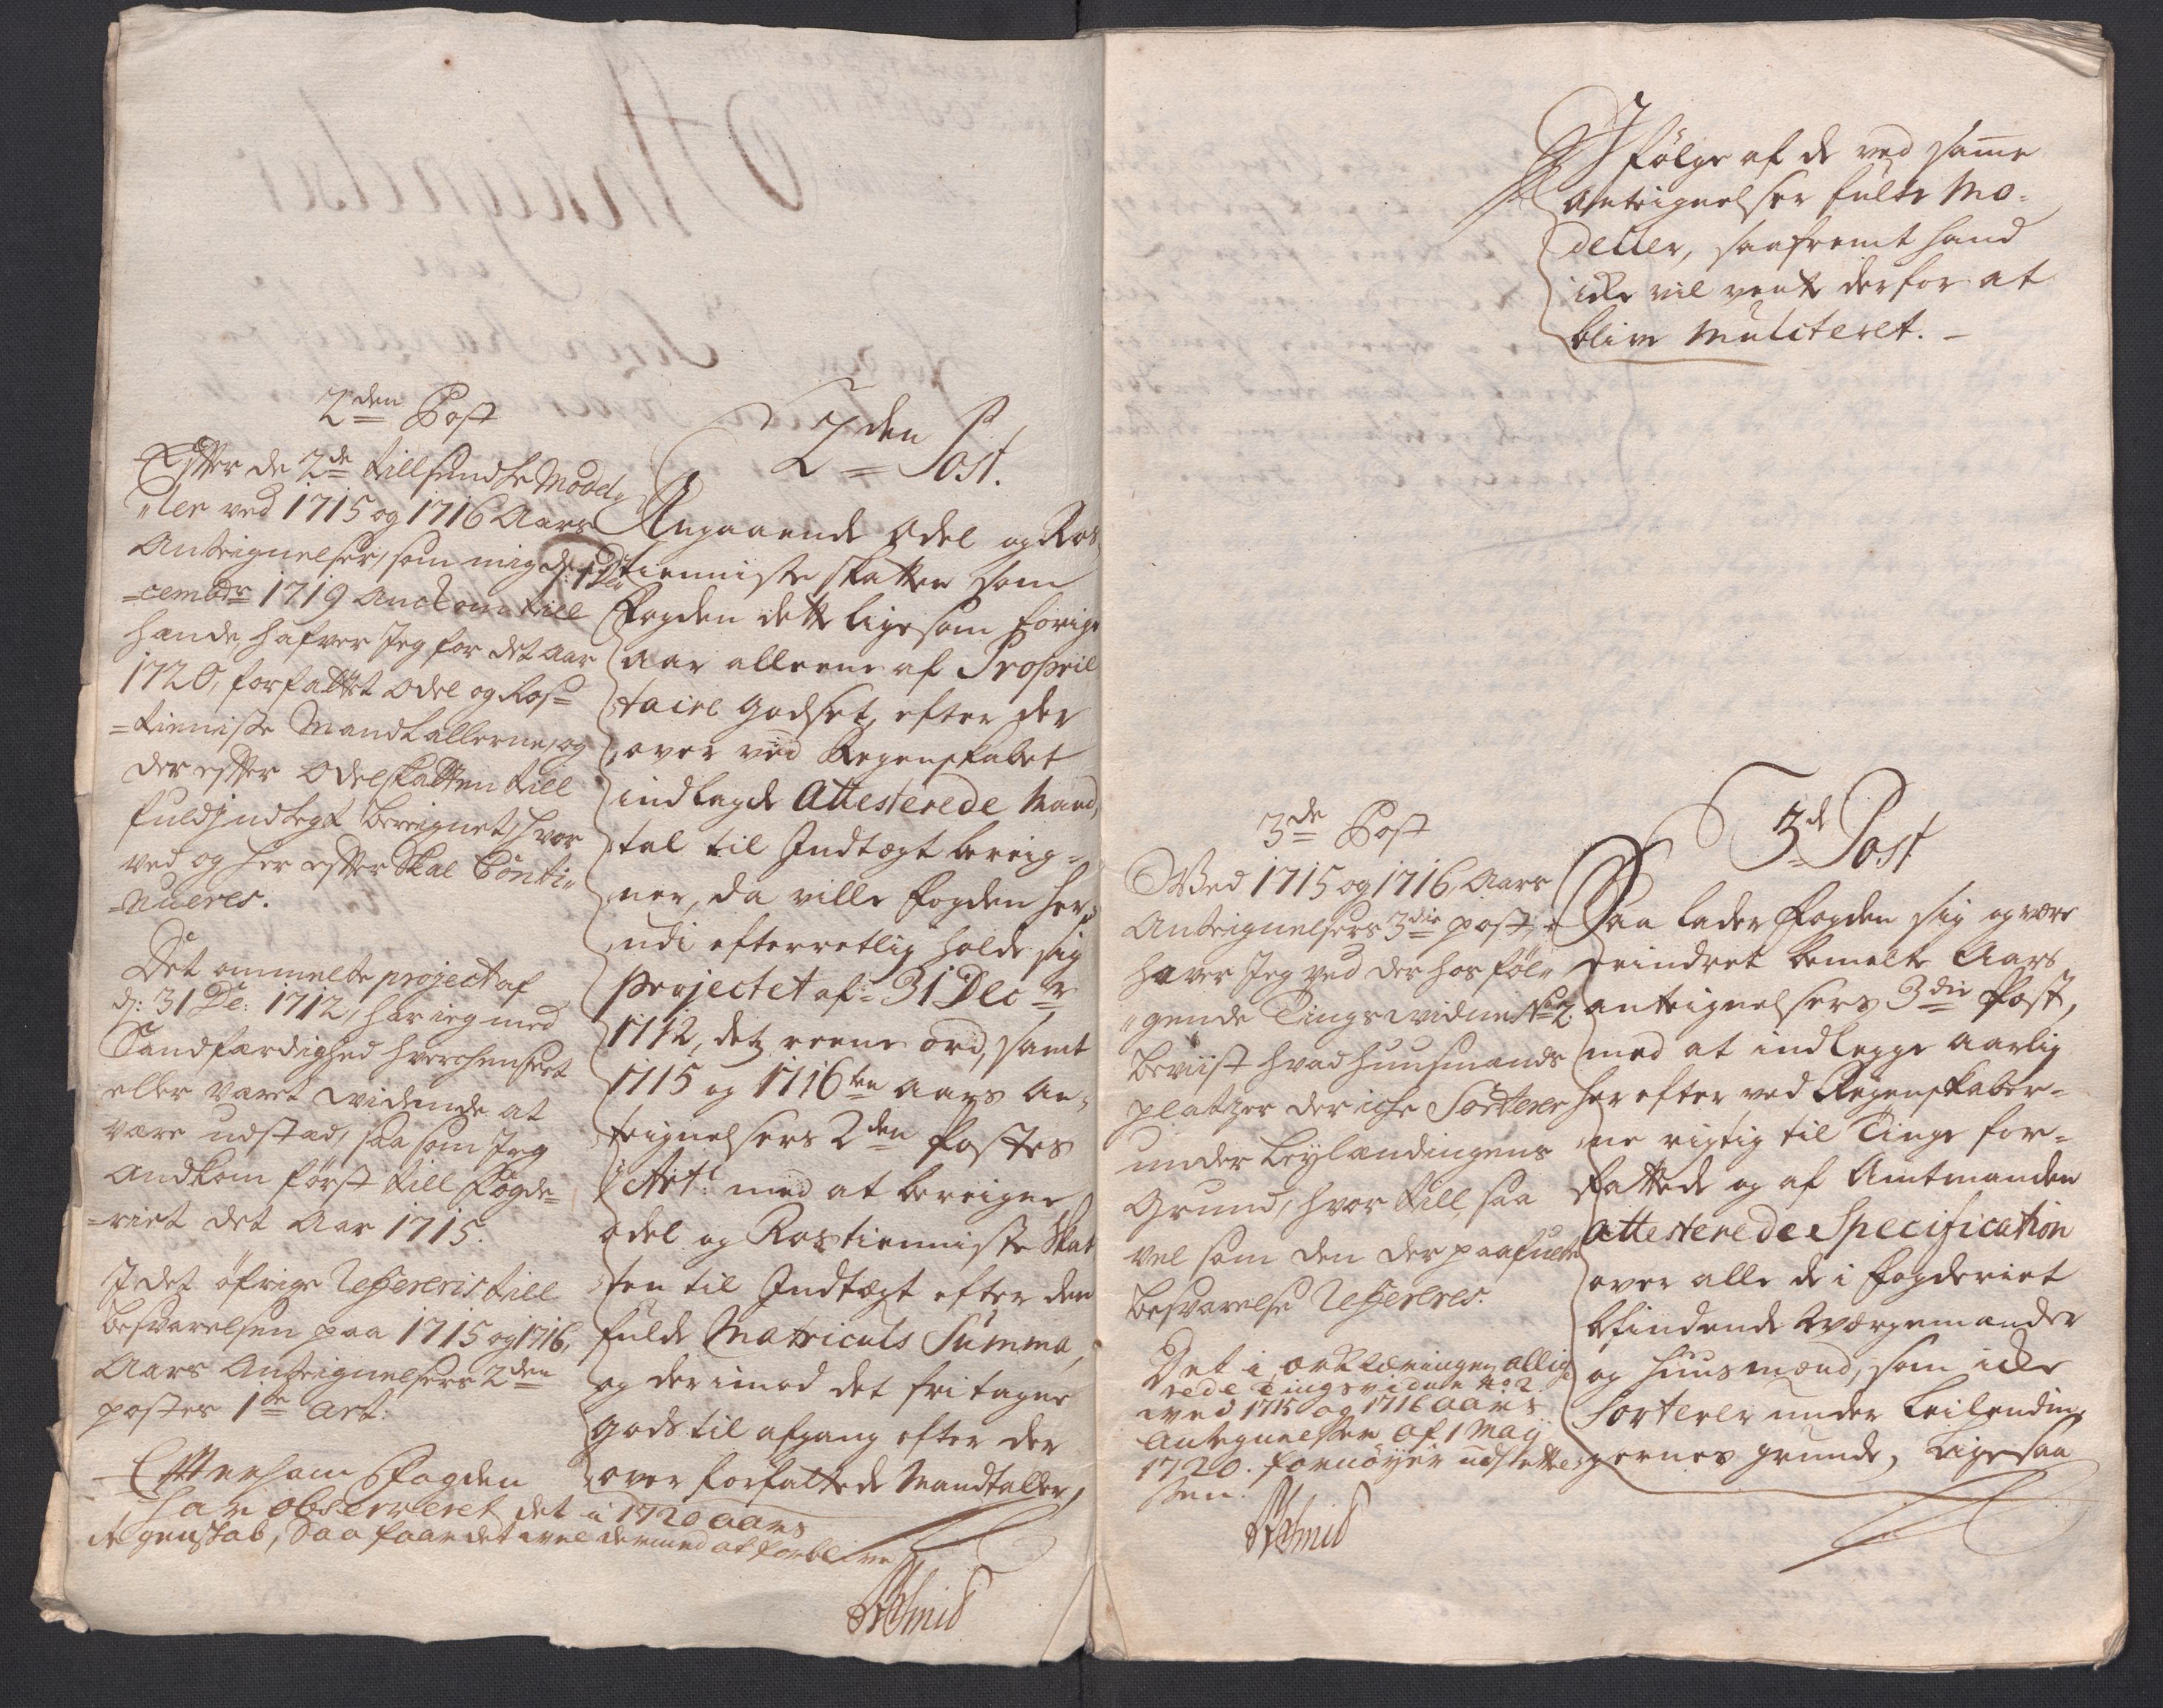 2den Post
Efter de 2de tillsendte Model,,
,,ler ved 1715 og 1716 Aars
Anteignelser, som mig d: 1 De
=cembr 1719 Ankom till
hænde, hafver Jeg for det Aar
1720, forfattet Odel og Ros=
=tienniste Mandtallerne, og
der efter Odelskatten till
fuld Jndtegt bereignet, hvor
ved og her efter skal Conti,,
=nueres.
Det ommelte project af
d: 31 De: 1712, har ieg med
Sandfærdighed hverchen seet
eller været vidende at
være udstæd, saa som Jeg
Andkom først till Fogde=
=riet det Aar 1715.
I det öfrige Refereris till
besvarelsen paa 1715 og 1716,
Aars Anteignelsers 2den
postes 1te Art:
Efftersom Fogden
har observeret det i 1720 aars
Regenskab, Saa faar det vel dermed at forblive
Schmid
2den Post.
Angaaende Odel og Ros,
tienniste skatten som
Fogden dette ligesom forige
aar alleene af Propriè
taire godset, efter der
over ved Regenskabet
indlagde Attesterede Mand,
tal til Indtægt bereig=
ner, da ville fogden her,
udi efterretlig holde sig
projectet af 31 Decr
1712, detz reene ord, samt
1715 og 1716ten aars An,
teignelsers 2den Postes
1 Art: med at bereigne
odel og Rostienniste Skat
ten til Indtægt efter den
fulde Matriculs Summa,
og derimod det fri tagne
gods til afgang efter der
over forfattede Mandtaller,
I følge af de ved samme
Anteignelser fulte Mo=
deller, saafremt hand
icke vil vente derfor at
blive Mulcteret. –
3de Post
Ved 1715 og 1716, Aars
Anteignelsers 3die post,
haver Jeg ved der hos föl,,
,,gende Tings vidne No 2.
beviist hvad huusmands
platzer der iche Sorterer
under Leylændingens
Grund, hvor till, saa
vel som den der paa fulte
besvarelse Refereres.
Det i erklæringen allige
rede Tingsvidne No 2
ved 1715 og 1716 aars
Antegnelsser af 1 Maij
1720. fornöyer udsætte
sen.
Schmid
3de Post
Saa lader fogden sig og være
erindret bemelte Aars
anteignelsers 3die Post,
med at indlegge aarlig
her efter ved Regenskaber=
ne rigtig til Tinge for=
fattede og af Amtmanden
attesterede Specification
over alle de i fogderiet
befindende Værgemænder
og huusmænd, som icke
Sorterer under Leilending
gernes grunde, ligesaa